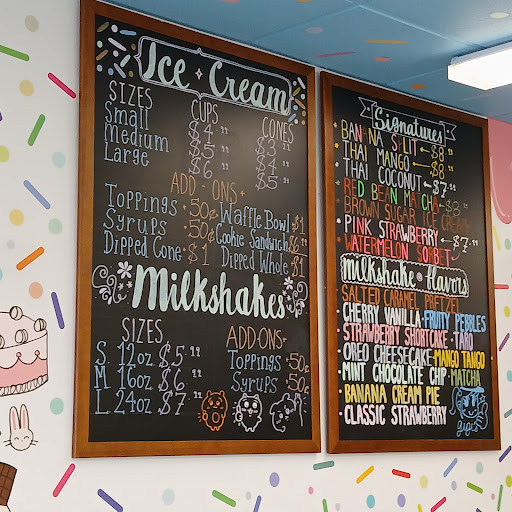 Ice Cream
SIZES CUPS CONES
Small $4.99 $3.99
Medium $5.99 $4.99
Large $6.99 $5.99
ADD-ONS+
Toppings • 50¢ Waffle Bowl $1
Syrups • 50¢ Cookie Sandwich $6.99
Dipped Cone • $1 Dipped Whole $1
Milkshakes
SIZES ADD-ONS+
S. 12oz $5.99 Toppings • 50¢
M. 16oz $6.99 Syrups • 50¢
L. 24oz. $7.99
Signatures
• BANANA SPLIT - $8.99
• THAI MANGO - $8.99
• THAI COCONUT - $7.99
• RED BEAN MATCHA - $8.99
• BROWN SUGAR ICE CREAM
• PINK STRAWBERRY - $7.99
• WATERMELON SORBET
Milkshake • flavors
SALTED CARAMEL PRETZEL
CHERRY VANILLA • FRUITY PEBBLES
STRAWBERRY SHORTCAKE • TARO
OREO CHEESECAKE • MANGO TANGO
• MINT CHOCOLATE CHIP • MATCHA
• BANANA CREAM PIE
• CLASSIC STRAWBERRY
gigi's